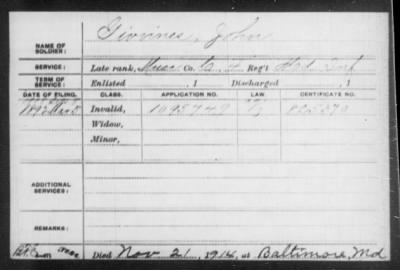 NAME OF SOLDIER: Givvines, John
SERVICE: Late rank, Co. Reg't Inf
TERM OF SERVICE: Enlisted , 1 Discharged , 1
DATE OF FILING. CLASS. APPLICATION NO. LAW. CERTIFICATE NO.
Invalid, 1095749
Widow,
Minor,
ADDITIONAL SERVICES:
REMARKS:
Died Nov 21, 1914, at Baltimore, Md